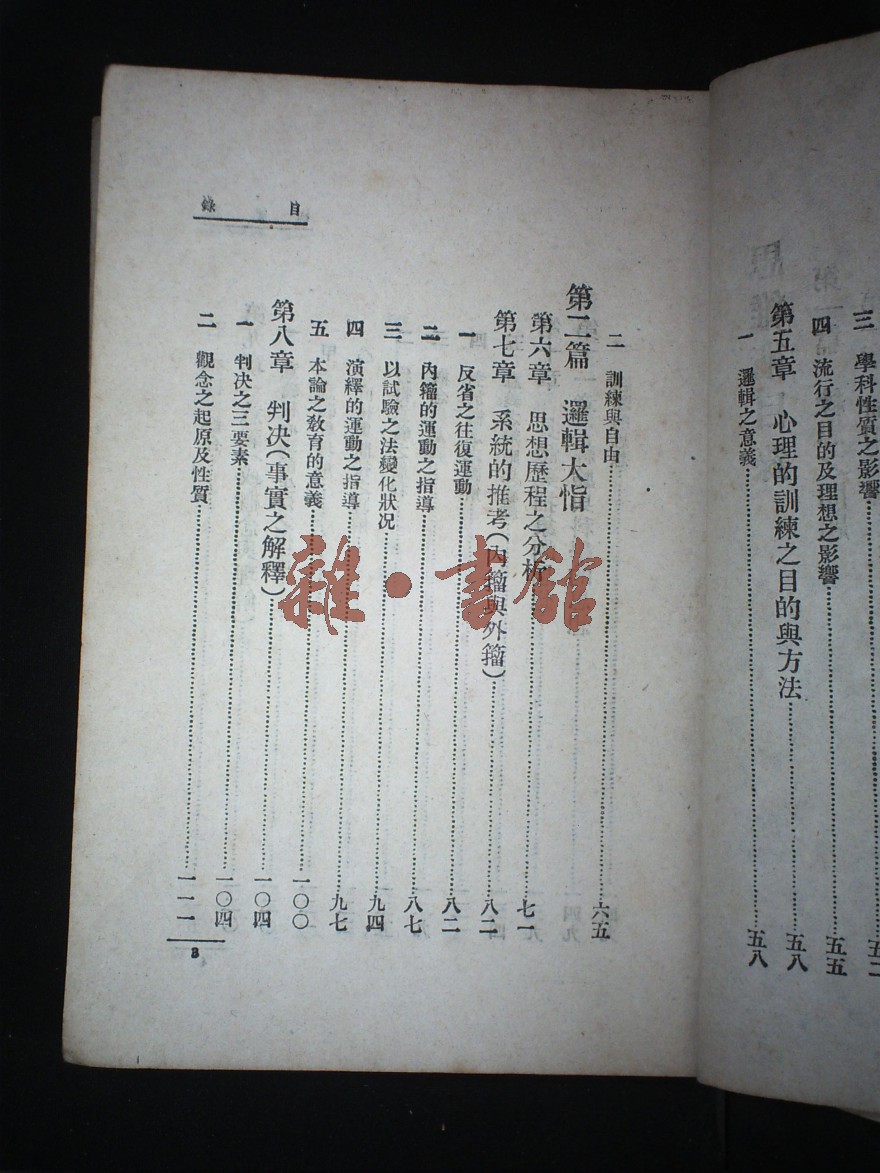 三 學科性質之影響
四 流行之目的及理想之影響 五五
第五章 心理的訓練之目的與方法 五八
一 邏輯之意義 五八
目錄
二 訓練與自由 六五
第二篇 邏輯大恉
第六章 思想歷程之分析 七一
第七章 系統的推考(內籀與外籀) 八二
一 反省之往復運動 八二
二 內籀的運動之指導 八七
三 以試驗之法變化狀況 九四
四 演繹的運動之指導 九七
五 本論之敎育的意義 一〇〇
第八章 判決(事實之解釋) 一〇四
一 判決之三要素 一〇四
二 觀念之起原及性質 一一一
3
雜·書館